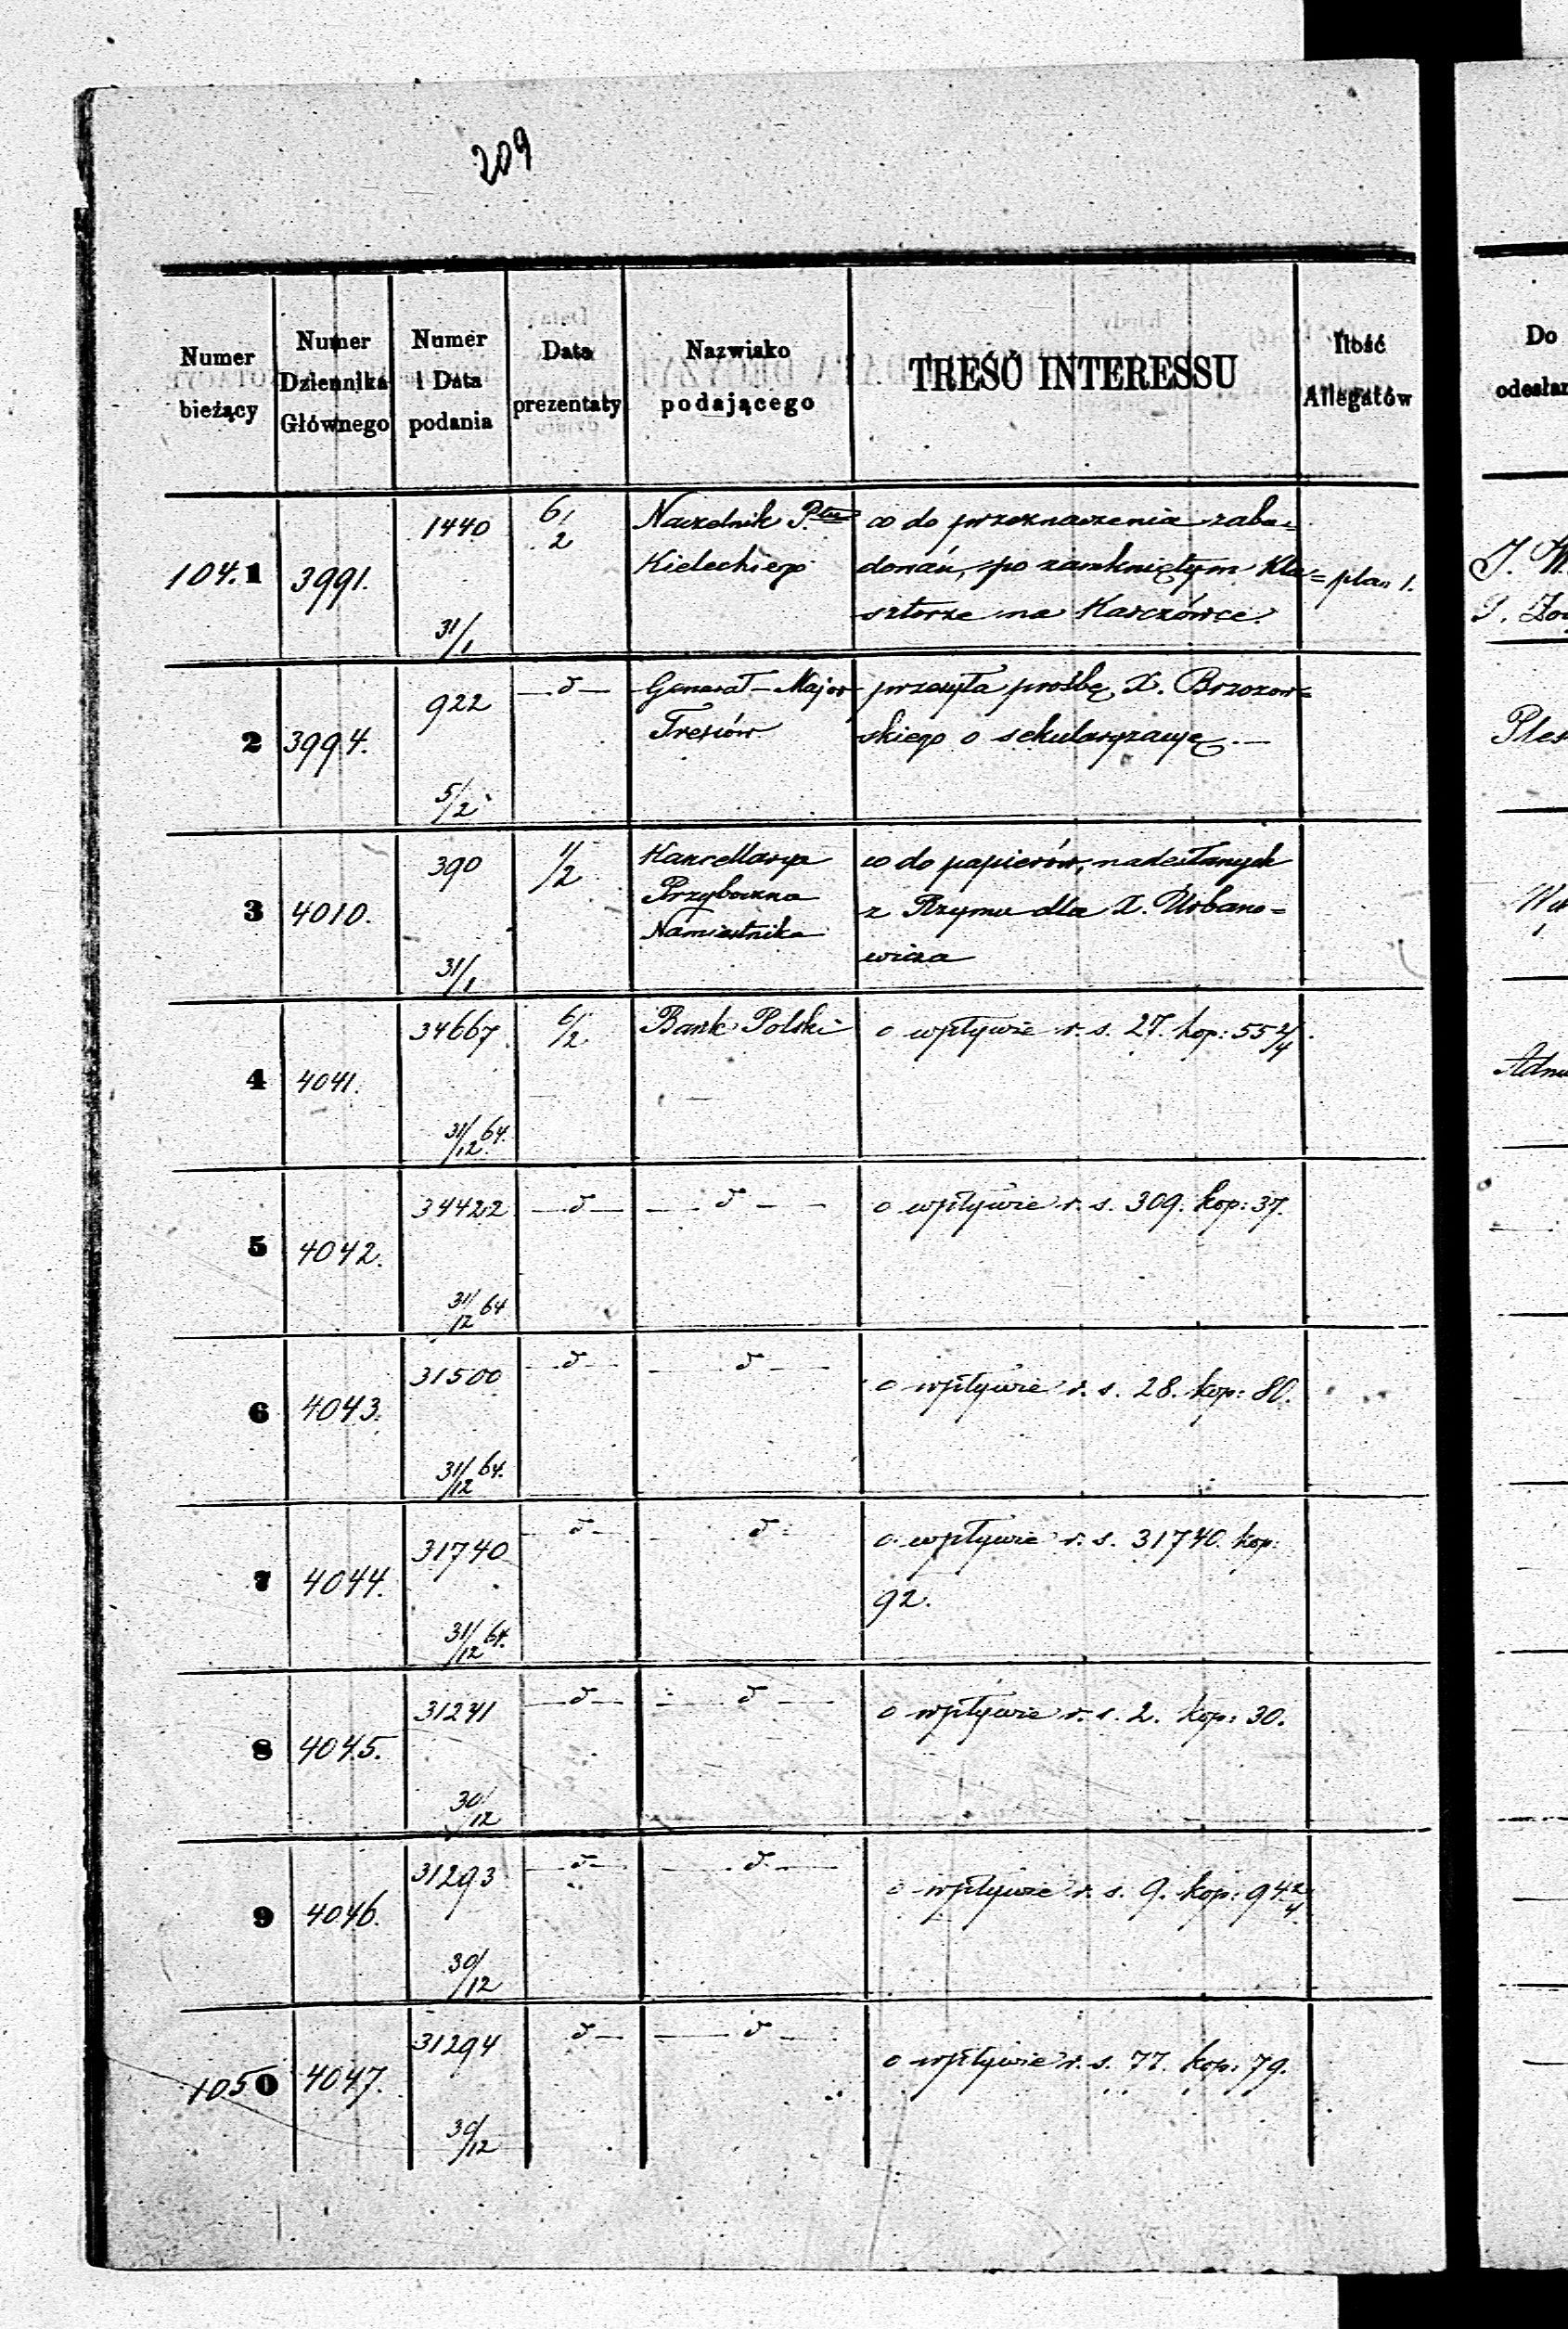 209
Numer bieżący
Numer Dziennika Głównego
Numer i Data podania
Data prezentaty
Nazwisko podającego
TREŚĆ INTERESSU
Ilość Allegatów
Do
104.1 3991. 1440 31/1 6/2 Naczelnik Ptu co do przeznaczenia zabu=
Kieleckiego dowań, po zamkniętym Kla= plan 1.
sztorze na Karczówce.
2 3994. 922 5/2 — d — Generał-Major przesyła prośbę X. Brzozow=
skiego o sekularyzacyę. —
3 4010. 390 31/1 1/2 Kancellarya co do papierów, nadesłanych
Przyboczna z Rzymu dla X. Urbano=
Namiestnika wicza
4 4041. 34667 31/12 64. 6/2 Bank Polski o wpływie r. s. 27. kop: 55 2/4.
5 4042. 34422 31/12 64 — d — — d — o wpływie r. s. 309. kop: 37.
6 4043. 31500 31/12 64. — d — — d — o wpływie r. s. 28. kop: 80.
7 4044. 31740 31/12 64. — d — — d — o wpływie r. s. 31740. kop:
92.
8 4045. 31241 30/12 — d — — d — o wpływie r. s. 2. kop: 30.
9 4046. 31293 30/12 — d — — d — o wpływie r. s. 9. kop: 94 2/4.
1050 4047. 31294 30/12 d — — d — o wpływie r. s. 77. kop: 79.